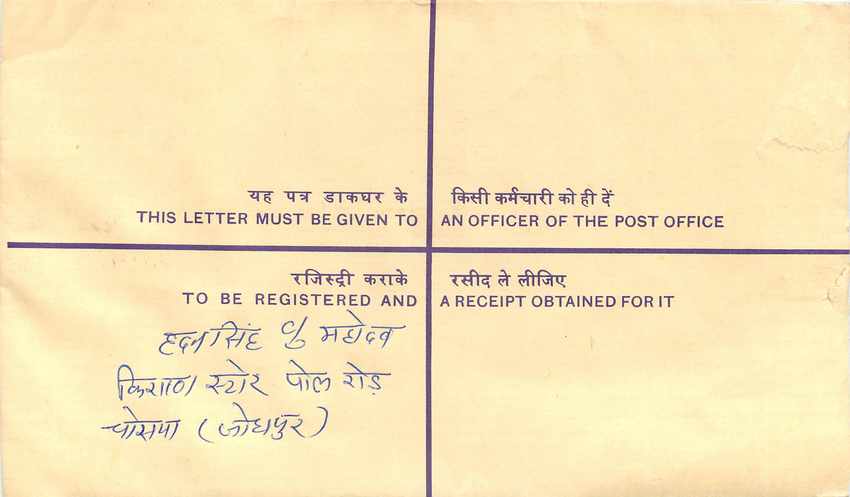 यह पत्र डाकघर के किसी कर्मचारी को ही दें
THIS LETTER MUST BE GIVEN TO AN OFFICER OF THE POST OFFICE
रजिस्ट्री कराके रसीद ले लीजिए
TO BE REGISTERED AND A RECEIPT OBTAINED FOR IT
सिंह
स्टोर पोल रोड़
(जोधपुर)